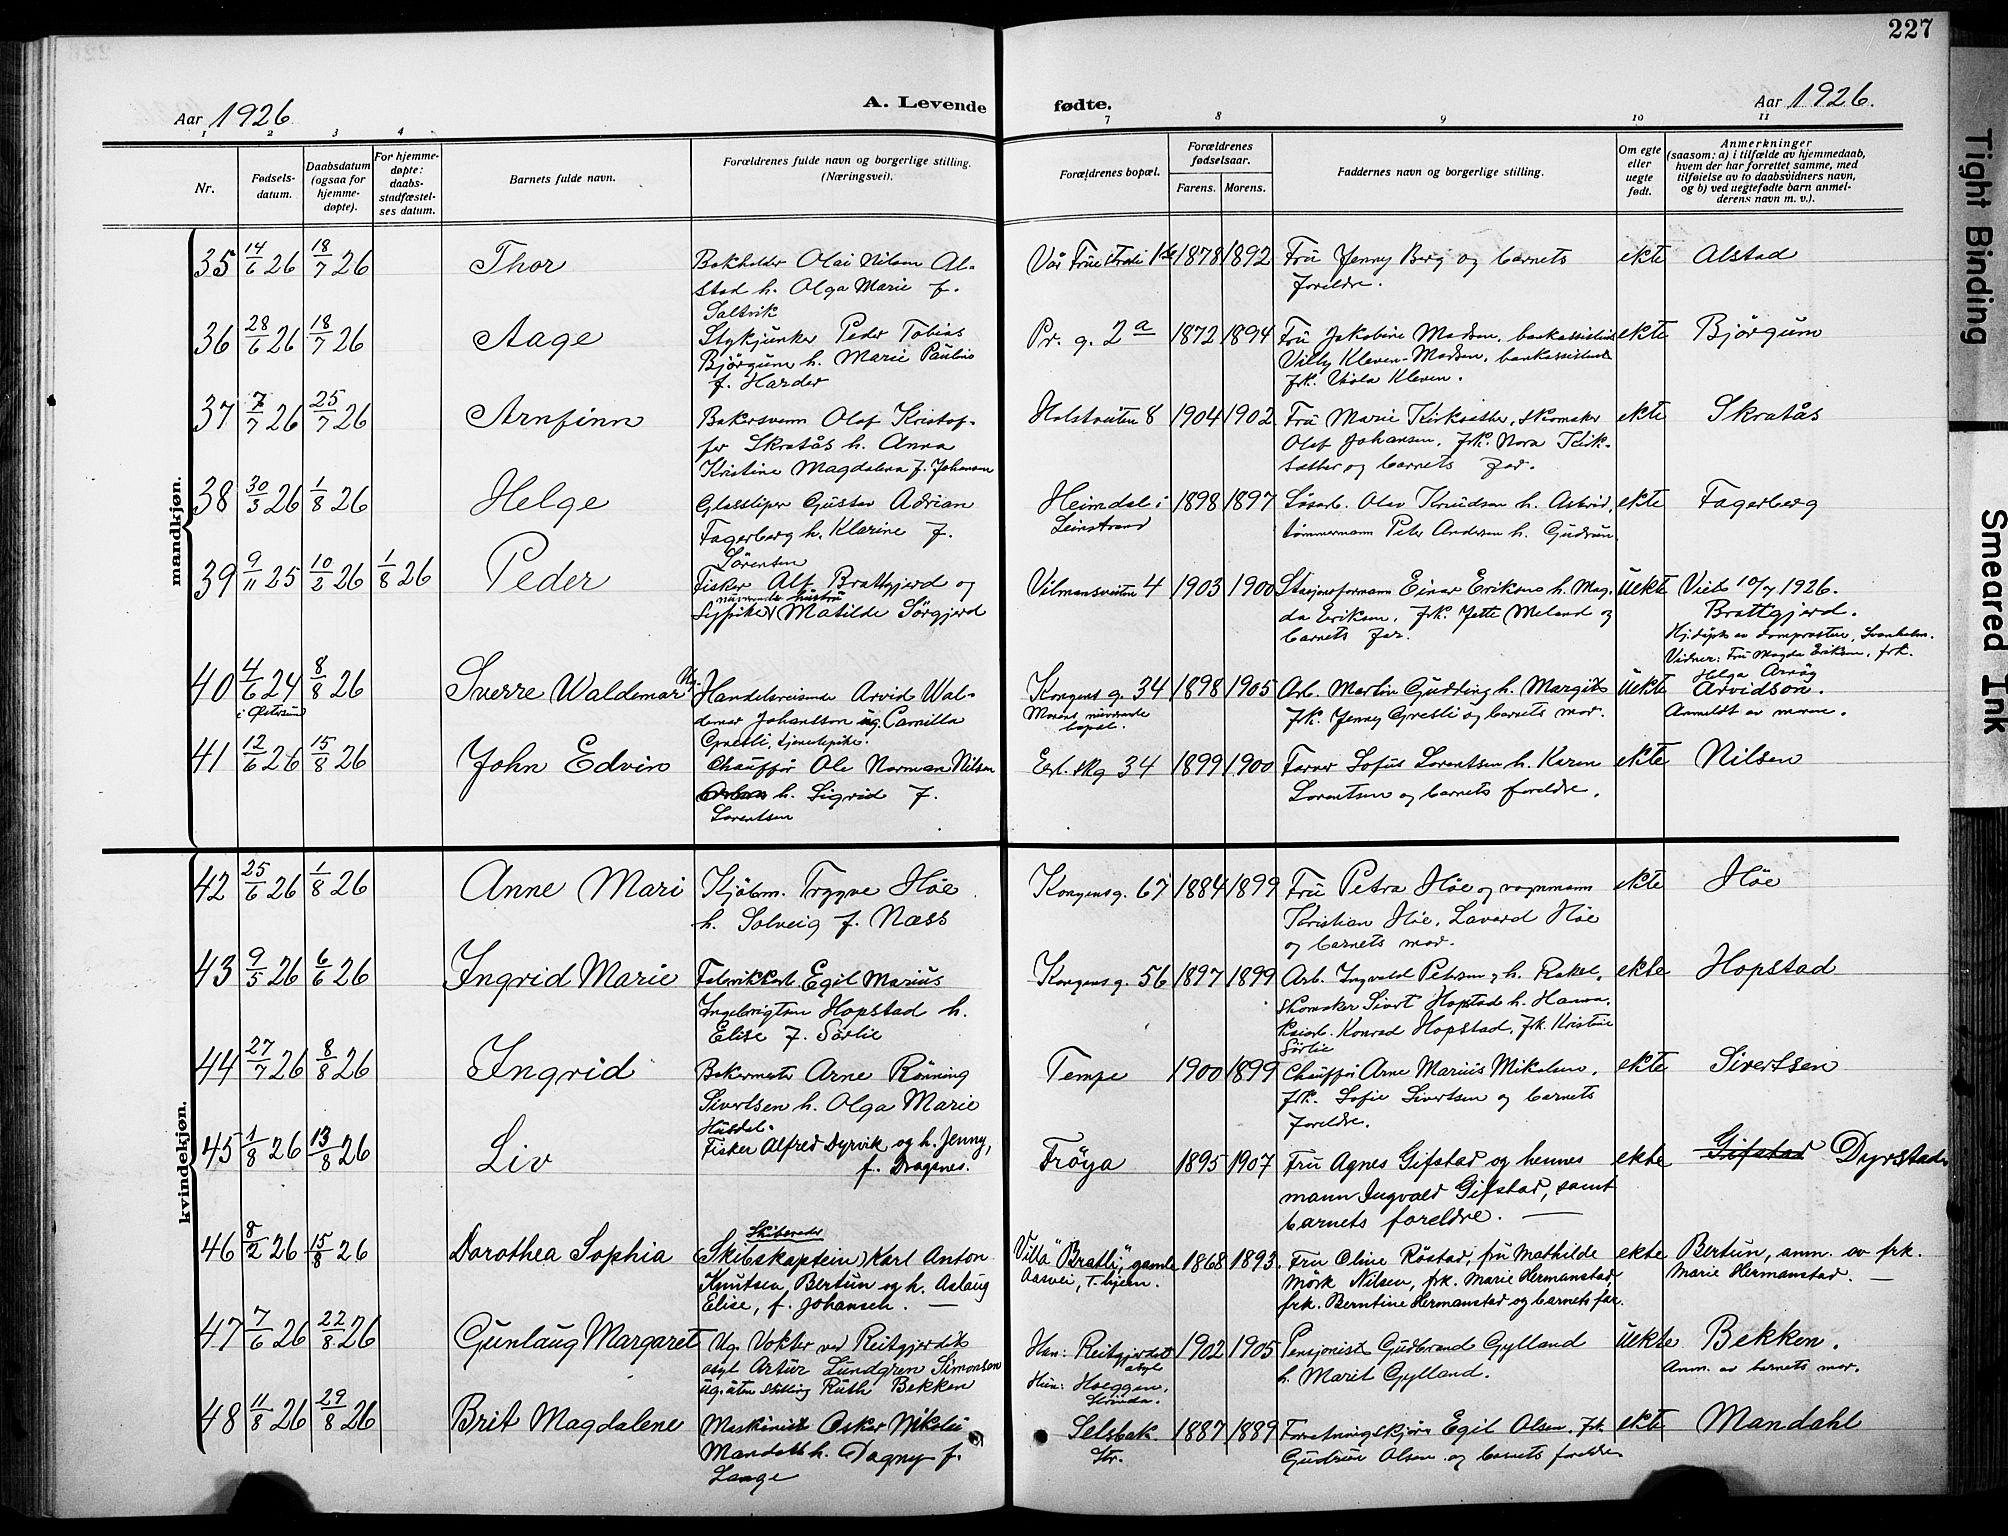 227
Aar 1926
A. Levende
fødte.
Aar 1926.
1 2 3 4 7 8 9 10 11
Nr.
Fødsels-
datum.
Daabsdatum
(ogsaa for
hjemme-
døpte).
For hjemme-
døpte:
daabs-
stadfæstel-
ses datum.
Barnets fulde navn.
Forældrenes fulde navn og borgerlige stilling.
(Næringsvei).
Forældrenes bopæl.
Forældrenes
fødselsaar.
Farens. Morens.
Faddernes navn og borgerlige stilling.
Om egte
eller
uegte
født.
Anmerkninger
(saasom: a) i tilfælde av hjemmedaab,
hvem der har forrettet samme, med
tilføielse av to daabsvidners navn,
og b) ved uegtefødte barn anmel-
derens navn m. v.).
mandkjøn.
35 14/6 26 18/7 26 Thor
Bokholder Olai Nilsen Al-
stad h. Olga Marie f.
Saltvik
Vår Frue Strete 1878 1892
Fru Jenny Berg og barnets
foreldre.
ekte Alstad
36 28/6 26 18/7 26 Aage
Stykjunker Peder Tobias
Bjørgum h. Marie Pauline
f. Harder
Pr. g. 2a 1872 1894
Fru Jakobine Madsen, bankassistent
Villy Kleven-Madsen, bankassistent
frk. Viola Kleven.
ekte Bjørgum
37 7/7 26 25/7 26 Arnfinn
Bakersvenn Olaf Kristof-
fer Skratås h. Anna
Kristine Magdalena f. Johansen
Holstveiten 8 1904 1902
Fru Marie Kirksæther, skomaker
Olaf Johansen, frk. Nora Kirk-
sæther og barnets far.
ekte Skratås
38 30/3 26 1/8 26 Helge
Glassliper Gustav Adrian
Fagerberg h. Klarine f.
Sørensen
Heimdal i
Leinstrand
1898 1897
Løsarb. Olav Knudsen h. Astrid,
tømmermann Peter Andersen h. Gudrun
ekte Fagerberg
39 9/11 25 10/2 26 1/8 26 Peder
Fisker Alf Brattgjerd og
nuværende hustru
Sypike Matilde Sørgjerd
Vilmansveiten 4 1903 1900
Stasjonsformann Einar Eriksen h. Mag-
da Eriksen, frk. Jette Meland og
barnets far.
uekte Viet 10/7 1926.
Brattgjerd.
Hj.døpt av domprosten, Svanholm.
Vidner: Fru Magda Eriksen, frk.
Helga
40 4/6 24 8/8 26 Sverre Waldemar
i Østersund
Handelsreisende Arvid Wal-
demar Johansson ug. Camilla
Gresli, tjenestepike.
Kongens g. 34
Morens nuværende
bopæl.
1898 1905
Arb. Martin Gudding h. Margit
frk. Jenny Gresli og barnets mor.
uekte Arvidson.
Anmeldt av moren.
41 12/6 26 15/8 26 John Edvin
Chauffør Ole Norman Nilsen
h. Sigrid f.
Lorentsen
Erl. skg 34 1899 1900
Farver Sofus Lorentsen h. Karen
Lorentsen og barnets foreldre.
ekte Nilsen
kvindekjøn.
42 25/6 26 1/8 26 Anne Mari
Kjøbm. Trygve Høe
h. Solveig f. Næss
Kongens g. 67 1884 1899
Fru Petra Høe og vognmann
Kristian Høe, Laverd Høe
og barnets mor.
ekte Høe
43 9/5 26 6/6 26 Ingrid Marie
Fabrikkarb. Egil Marius
Ingebrigtsen Hopstad h.
Elise f. Sørlie
Kongens g. 56 1897 1899
Arb. Ingvald Petersen, h. Rakel,
skomaker Sivert Hopstad h. Hanna,
Konrad Hopstad, frk. Kristine
Sørlie
ekte Hopstad
44 27/7 26 8/8 26 Ingrid
Bakermester Arne Rønning
Sivertsen h. Olga Marie
Husdal.
Tempe 1900 1899
Chauffør Arne Marius Mikalsen,
frk. Sofie Sivertsen og barnets
foreldre.
ekte Sivertsen
45 1/8 26 13/8 26 Liv
Fisker Alfred Dyrvik og h. Jenny,
f. Dragsnes.
Frøya 1895 1907
Fru Agnes Gifstad og hennes
mann Ingvald Gifstad, samt
barnets foreldre. —
ekte Gifstad Dyrstad
46 8/2 26 15/8 26 Dorothea Sophia
Skibsreder
(Skibskaptein) Karl Anton
Knutsen Bertun og h. Aslaug
Elise, f. Johansen. —
Villa "Bratli", gamle
Aasvei, T.hjem.
1868 1893
Fru Oline Røstad, fru Mathilde
Mørk Nilsen, frk. Marie Hermanstad,
frk. Berntine Hermanstad og barnets far.
ekte Bertun, anm. av frk.
Marie Hermanstad. —
47 7/6 26 22/8 26 Gunlaug Margaret
Ug. Vokter ved Reitgjerdet
asyl Artur Lundgren Simonsen
ug. uten stilling Ruth Bekken
Han: Reitgjerdet
asyl
Hun: Hoeggen,
Strinda.
1902 1905
Pensjonist Gudbrand Gylland
h. Marit Gylland.
uekte Bekken.
Anm. av barnets mor.
48 11/8 26 29/8 26 Brit Magdalene
Maskinist Oskar Nikolai
Mandahl h. Dagny f.
Lange
Selsbak
Str.
1887 1889
Forretningskjører Egil Olsen, frk.
Gudrun Olsen og barnets foreldre
ekte Mandahl
Tight Binding
Smeared Ink